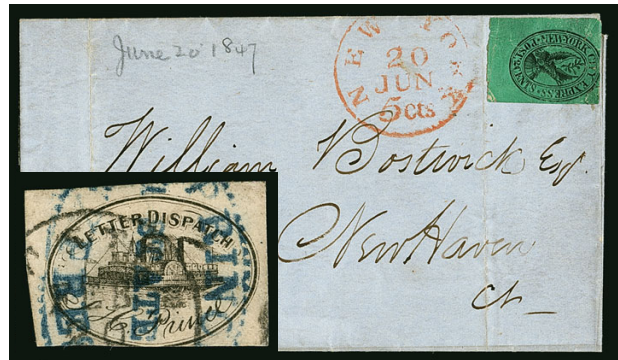 June 20 1847
NEW YORK
20
JUN
5 cts
NEW-YORK CITY EXPRESS POST
William Bostwick Esqr.
New Haven
Ct
LETTER DISPATCH
Prince